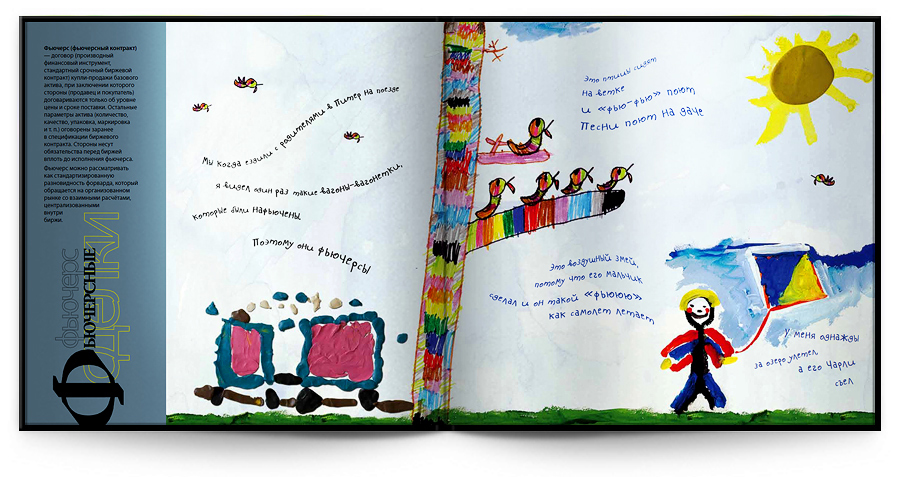 Фьючерс (фьючерсный контракт)
— договор (производный
финансовый инструмент,
стандартный срочный биржевой
контракт) купли-продажи базового
актива, при заключении которого
стороны (продавец и покупатель)
договариваются только об уровне
цены и сроке поставки. Остальные
параметры актива (количество,
качество, упаковка, маркировка
и т. п.) оговорены заранее
в спецификации биржевого
контракта. Стороны несут
обязательства перед биржей
вплоть до исполнения фьючерса.
Фьючерс можно рассматривать
как стандартизированную
разновидность форварда, который
обращается на организованном
рынке со взаимными расчётами,
централизованными
внутри
биржи.
фьючерс
ФЬЮЧЕРСНЫЕ
сделки
Мы когда ездили с родителями в Питер на поезде
я видел один раз такие вагоны-вагонетки,
которые были нафьючены.
Поэтому они фьючерсы
Это птицы сидят
на ветке
и «фью-фью» поют
Песни поют на даче
Это воздушный змей,
потому что его мальчик
сделал и он такой «фьююю»
как самолет летает
У меня однажды
за озеро улетел
а его Чарли
съел